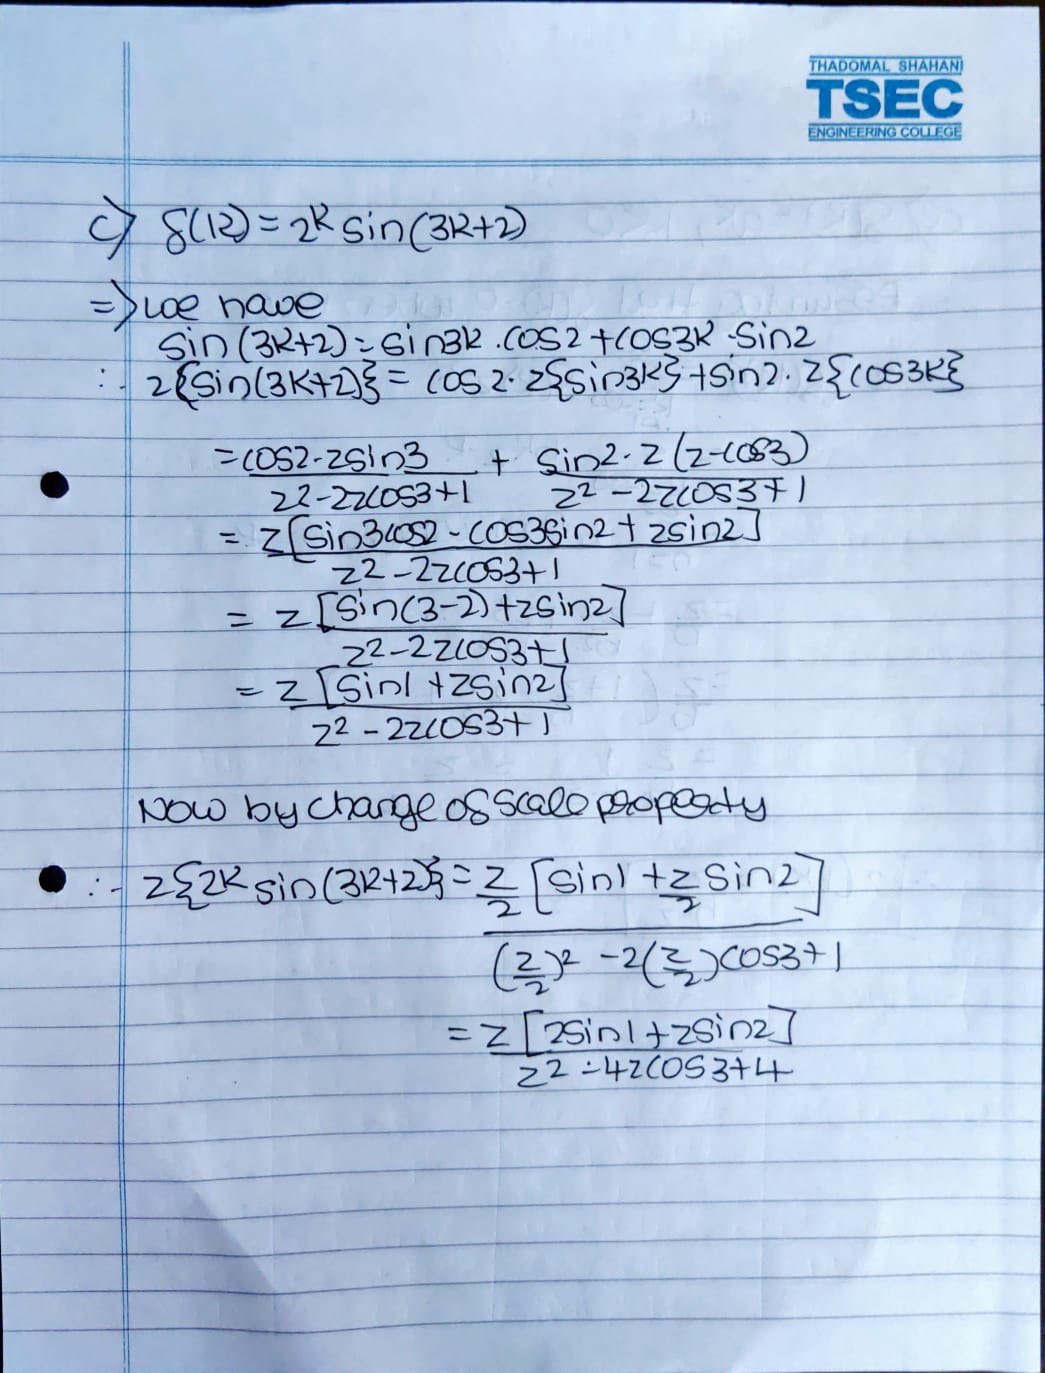 THADOMAL SHAHANI
TSEC
ENGINEERING COLLEGE
c) f(k) = 2^k sin(3k+2)
=> we have
sin(3k+2) = sin3k . cos2 + cos3k . sin2
∴ z{sin(3k+2)} = cos2. z{sin3k} + sin2. z{cos3k}
= cos2.zsin3 / z² - 2zcos3 + 1 + sin2.z(z-cos3) / z² - 2zcos3 + 1
= z[sin3cos2 - cos3sin2 + zsin2] / z² - 2zcos3 + 1
= z[sin(3-2) + zsin2] / z² - 2zcos3 + 1
= z[sin1 + zsin2] / z² - 2zcos3 + 1
Now by change of scale property
∴ z{2^k sin(3k+2)} = z/2 [sin1 + z/2 sin2] / (z/2)² - 2(z/2)cos3 + 1
= z[2sin1 + zsin2] / z² - 4zcos3 + 4